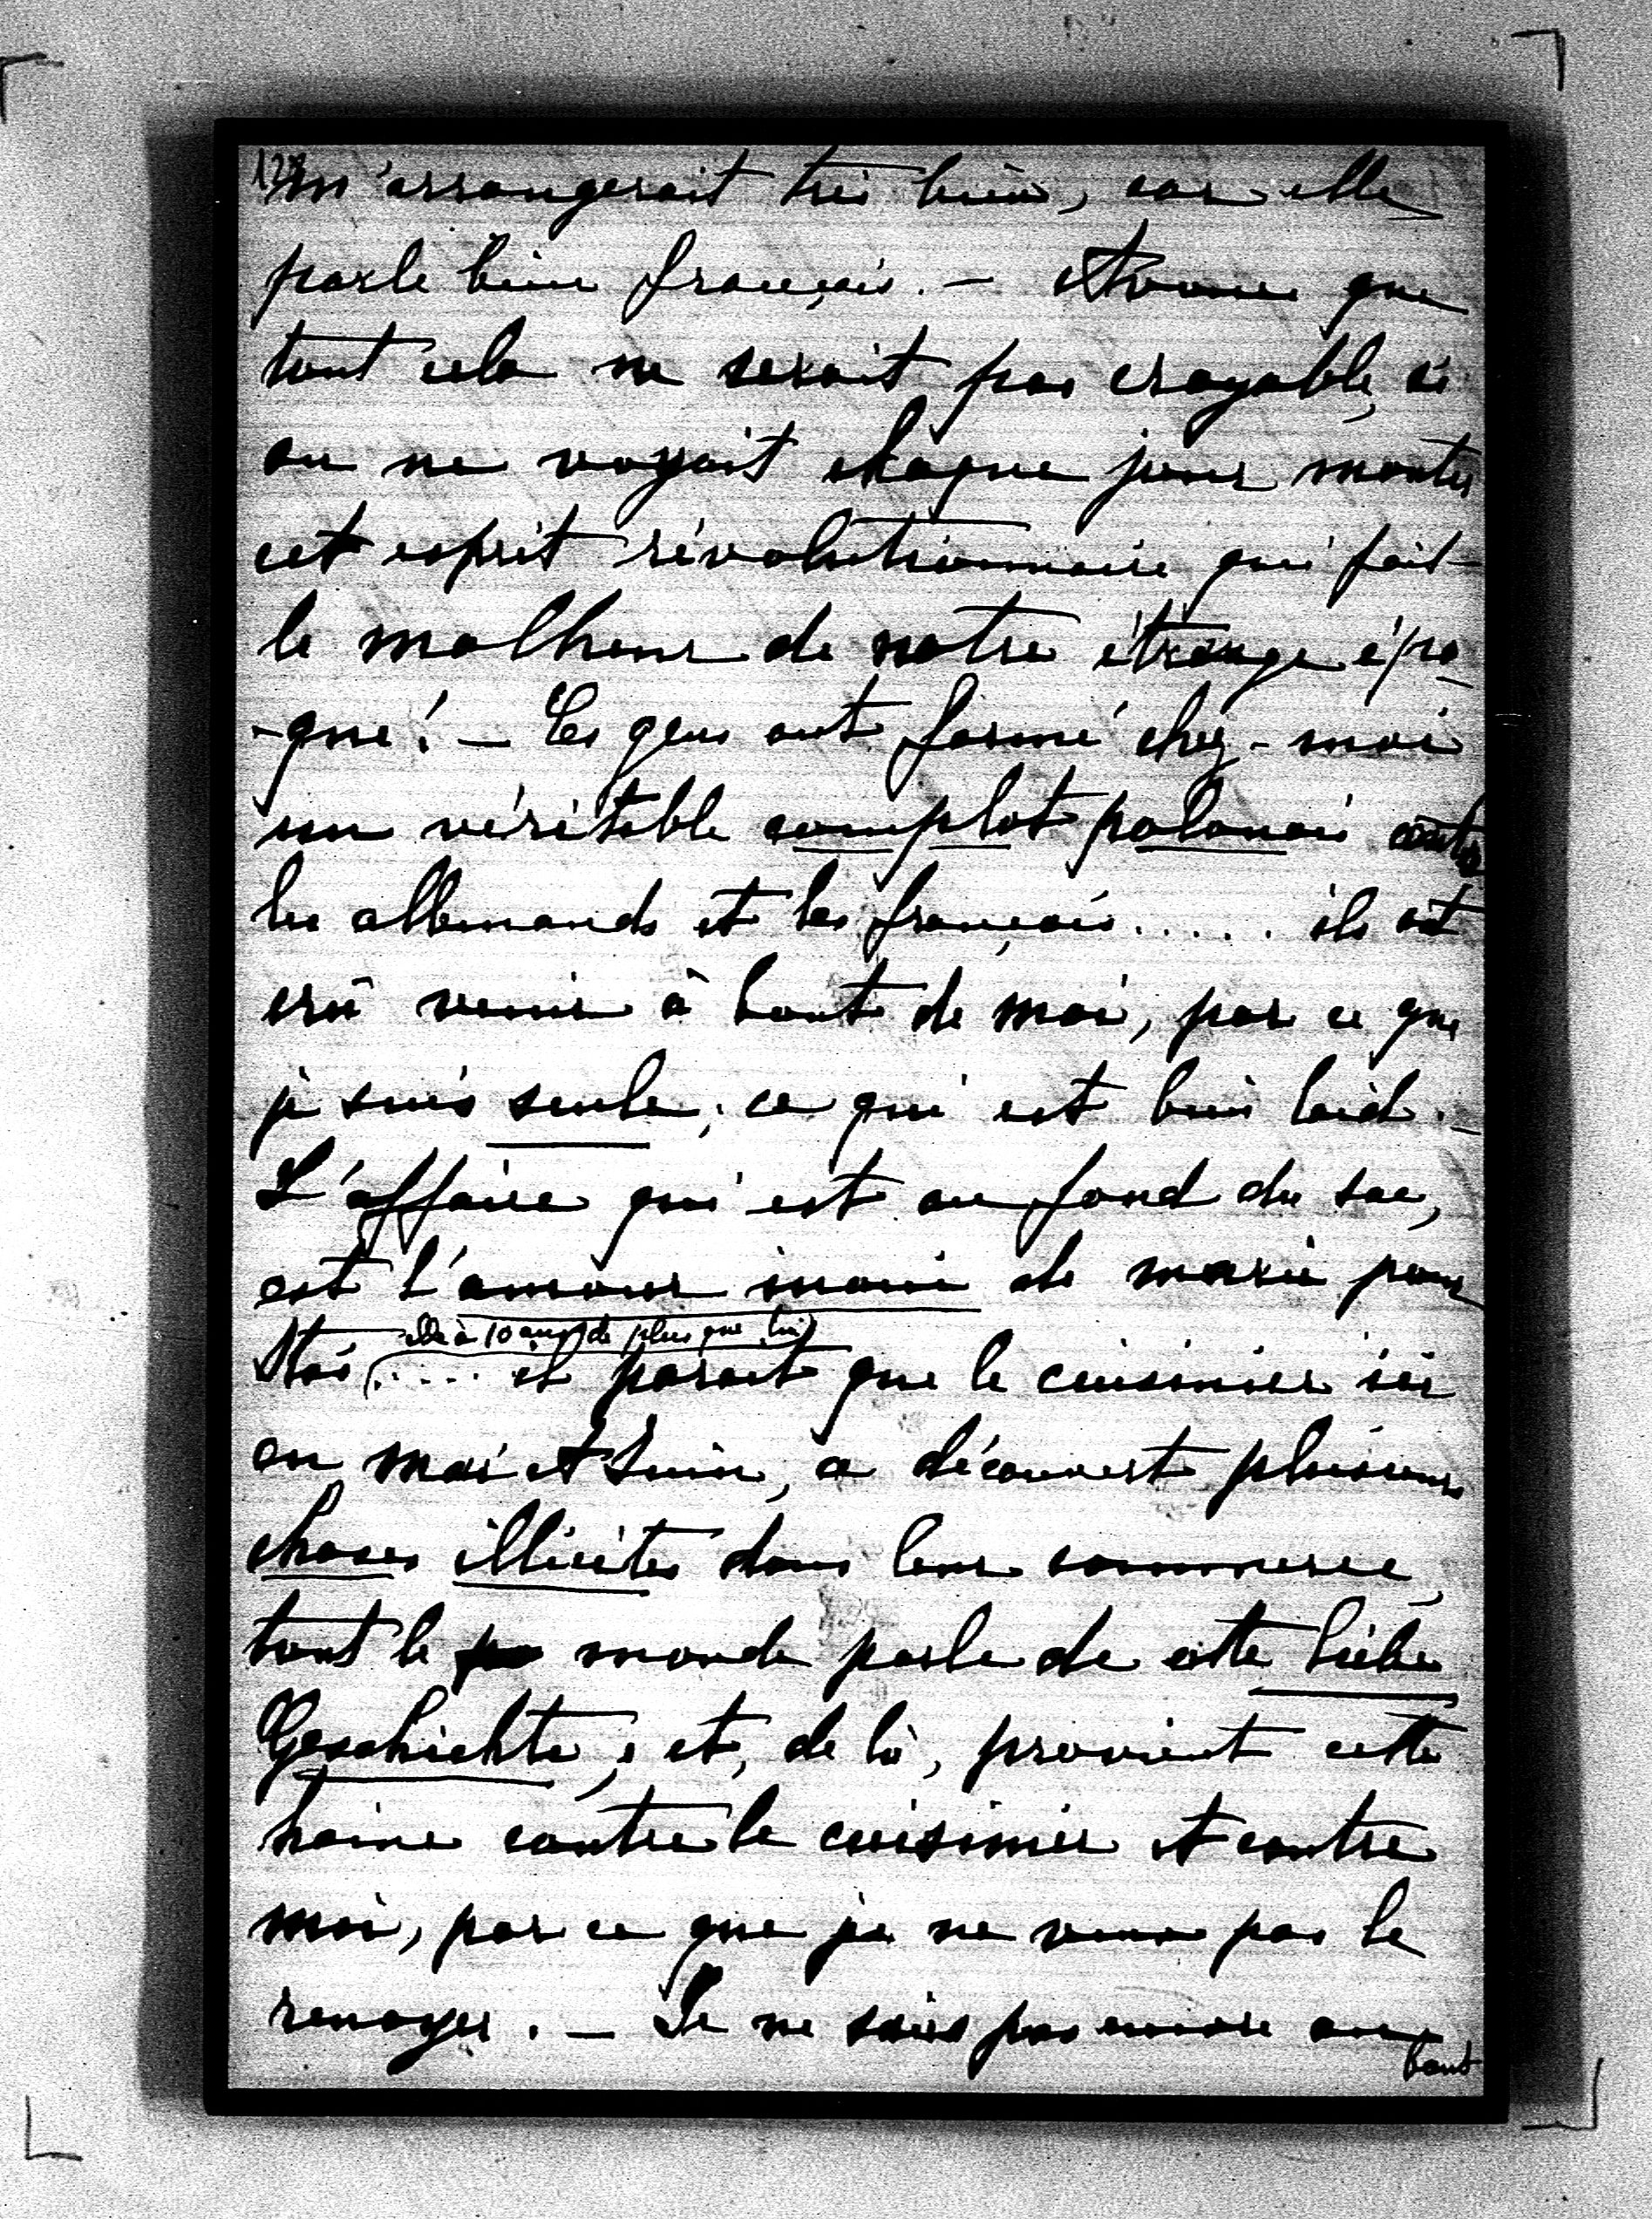 12
m'arrangerait très bien, car elle
parle bien français. — Avoue que
tout cela ne serait pas croyable, si
on ne voyait chaque jour monter
cet esprit révolutionnaire qui fait
le malheur de notre étrange épo-
-que! — Ces gens ont formé chez-moi
un véritable complot polonais contre
les allemands et les français..... ils ont
crû venir à bout de moi, par ce que
je suis seule, ce qui est bien laid. —
L'affaire qui est au fond du sac,
est l'amour inouï de Marie pour
(elle a 10 ans de plus que lui)
..... il parait que le cuisinier ici
en Mai et Juin, a découvert plusieurs
choses illicites dans leur commerce,
tout le monde parle de cette Liebes
Geschichte, et, de là, provient cette
haine contre le cuisinier et contre
moi, par ce que je ne veux pas le
renvoyer. — Je ne suis pas encore au
bout